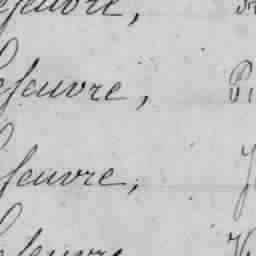 efeuvre,
efeuvre, Pi
efeuvre, J
efeuvre